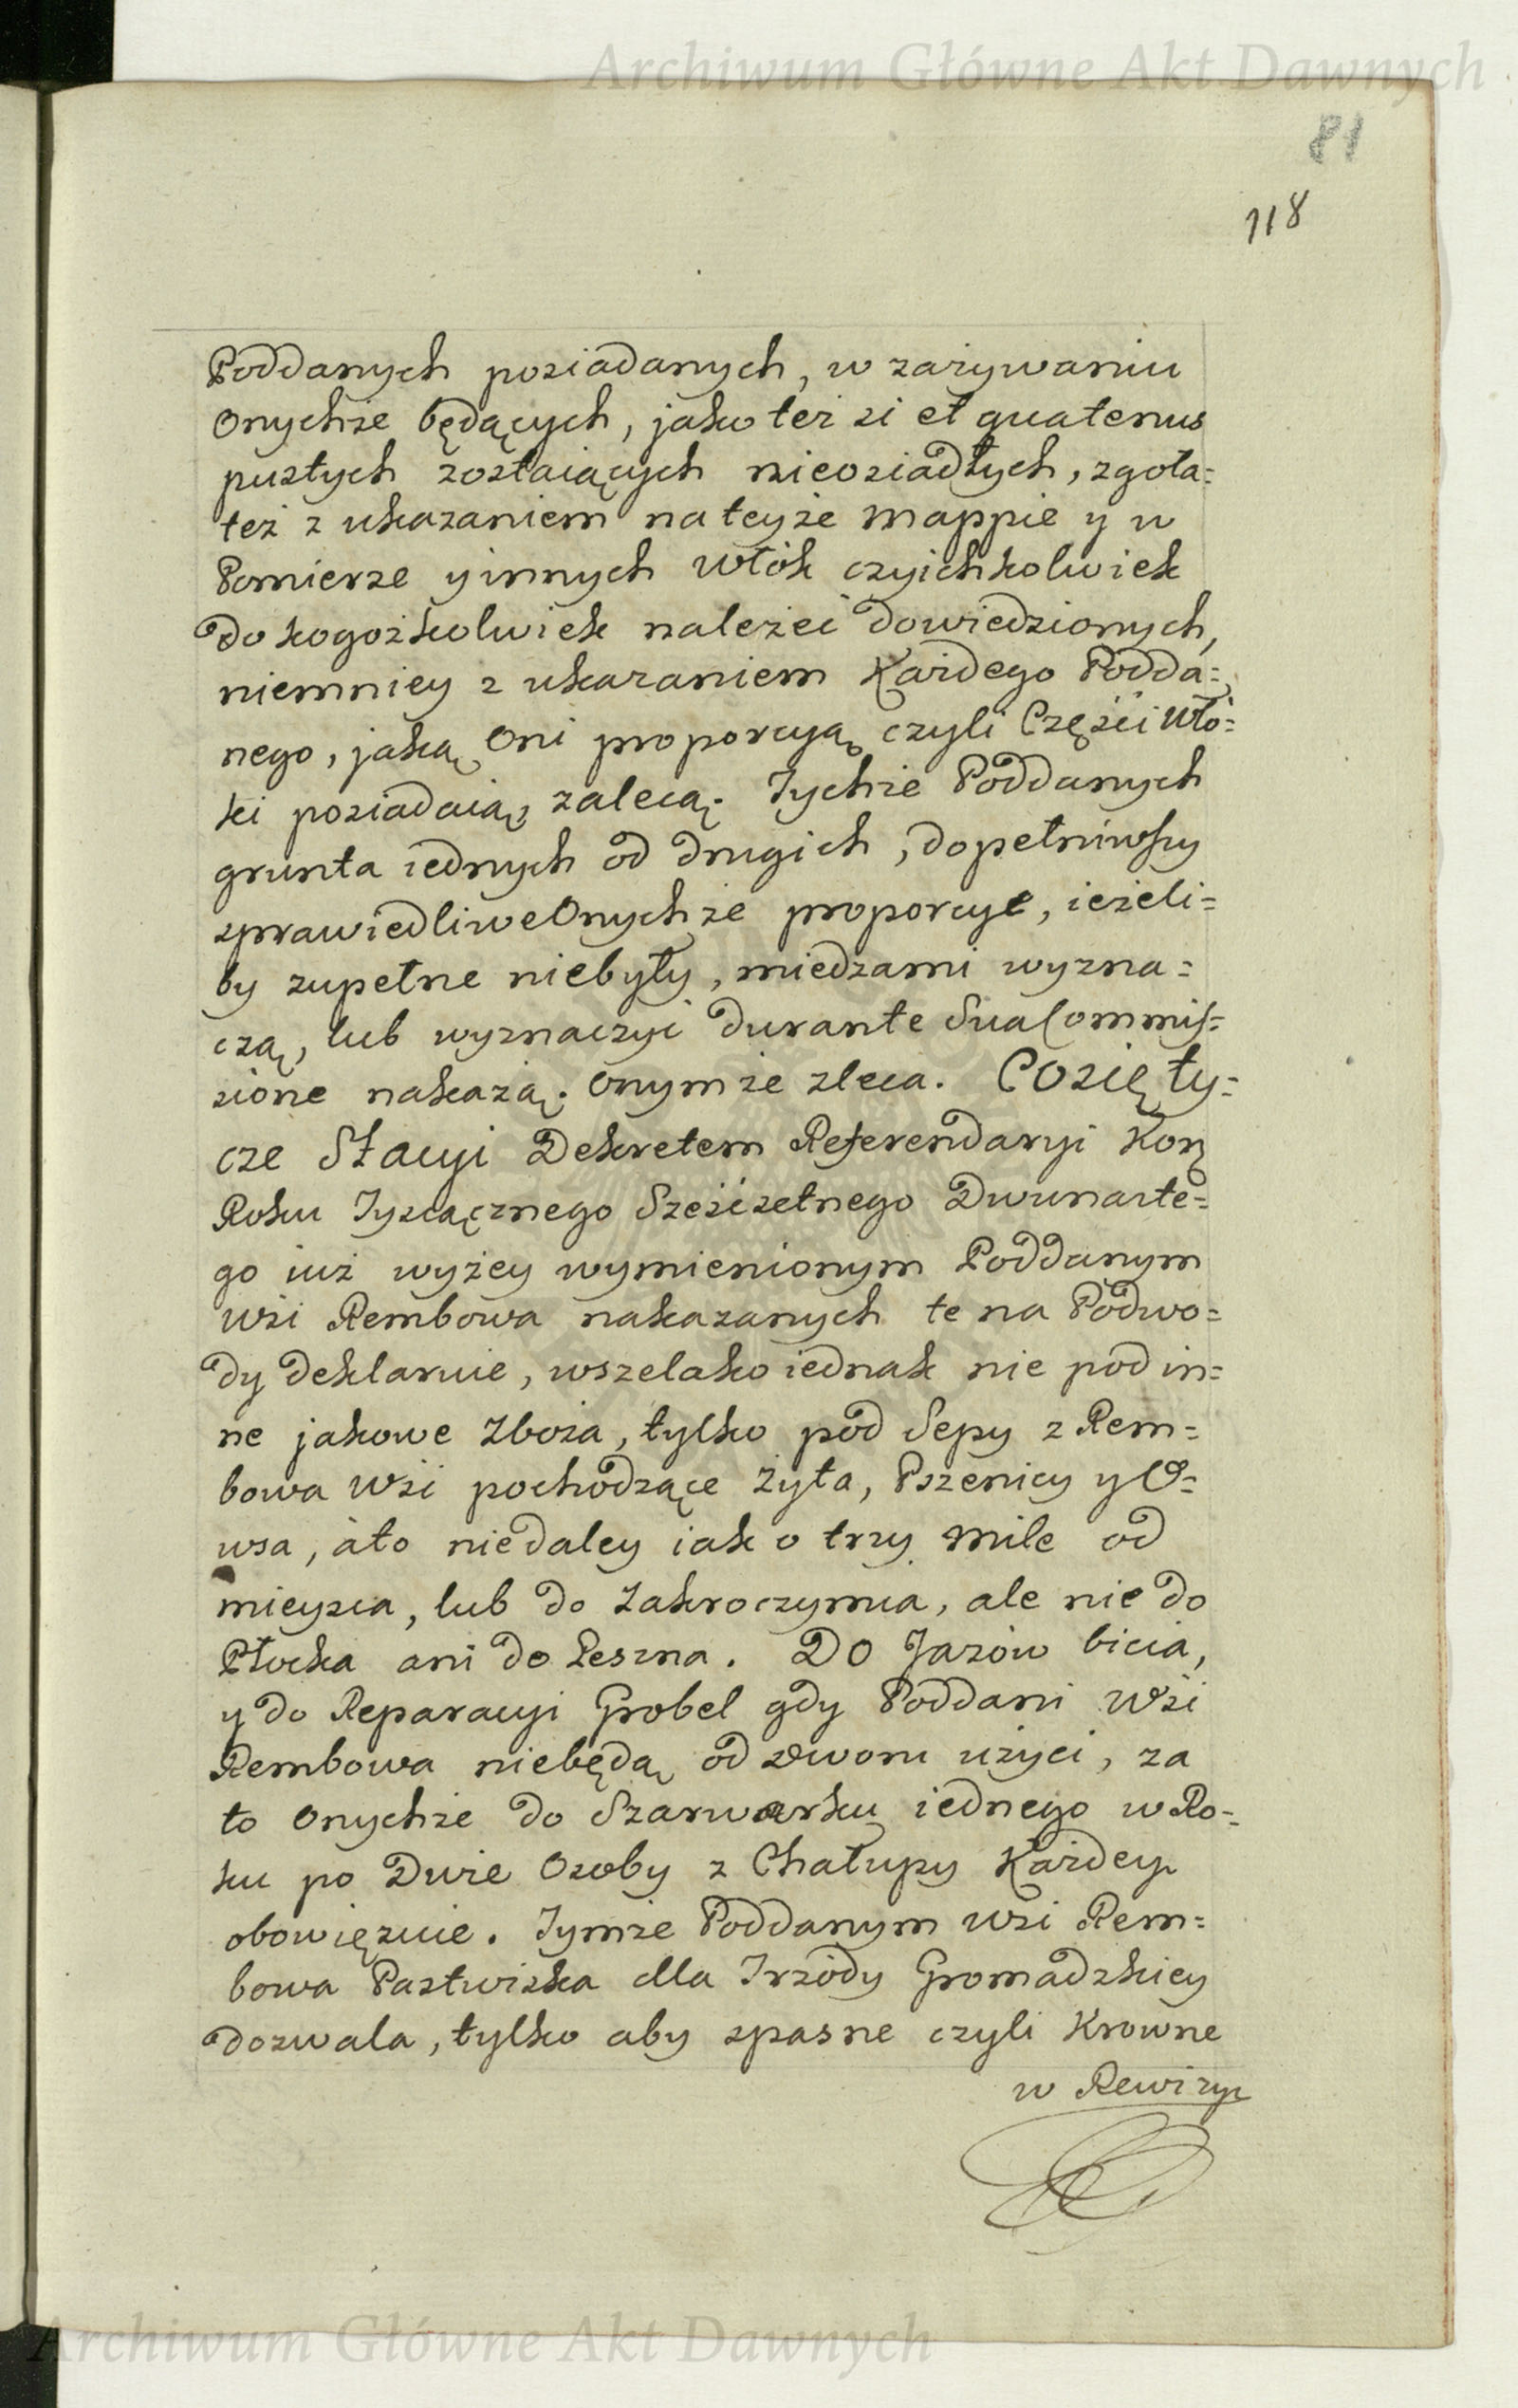 Archiwum Główne Akt Dawnych
81
118
Poddanych posiadanych, w zażywaniu
Onychże będących, jako też si et quatenus
pustych zostaiących nieosiadłych, zgoła=
też z ukazaniem na teyże Mappie y w
Pomierze y innych Włók czyichkolwiek
do kogożkolwiek należeć dowiedzionych,
niemniey z ukazaniem Każdego Podda=
nego, jaką Oni proporcyą czyli Części Wło=
ki posiadaią, zalecą. Tychże Poddanych
grunta iednych od drugich, dopełniwszy
sprawiedliwe Onychże proporcye, ieżeli=
by zupełne niebyły, miedzami wyzna=
czą, lub wyznaczyć durante Sua Commis=
sione nakażą. Onymże zleca. Co się ty=
cze Stacyi Dekretem Referendaryi Kor:
Roku Tysiącznego Sześćsetnego Dwunaste=
go iuż wyżey wymienionym Poddanym
Wsi Rembowa nakazanych te na Podwo=
dy deklaruie, wszelako iednak nie pod in=
ne jakowe Zboża, tylko pod Sepy z Rem=
bowa Wsi pochodzące Żyta, Pszenicy y O=
wsa, á to niedaley iak o trzy Mile od
mieysca, lub do Zakroczymia, ale nie do
Płocka ani do Leszna. Do Jazów bicia,
y do Reparacyi Grobel gdy Poddani Wsi
Rembowa niebędą od Dworu użyci, za
to Onychże do Szarwarku iednego w Ro=
ku po Dwie Osoby z Chałupy Każdey
obowięzuie. Tymże Poddanym Wsi Rem=
bowa Pastwiska dla Trzody Gromadzkiey
dozwala, tylko aby spasne czyli Krowne
w Rewizyi
Archiwum Główne Akt Dawnych